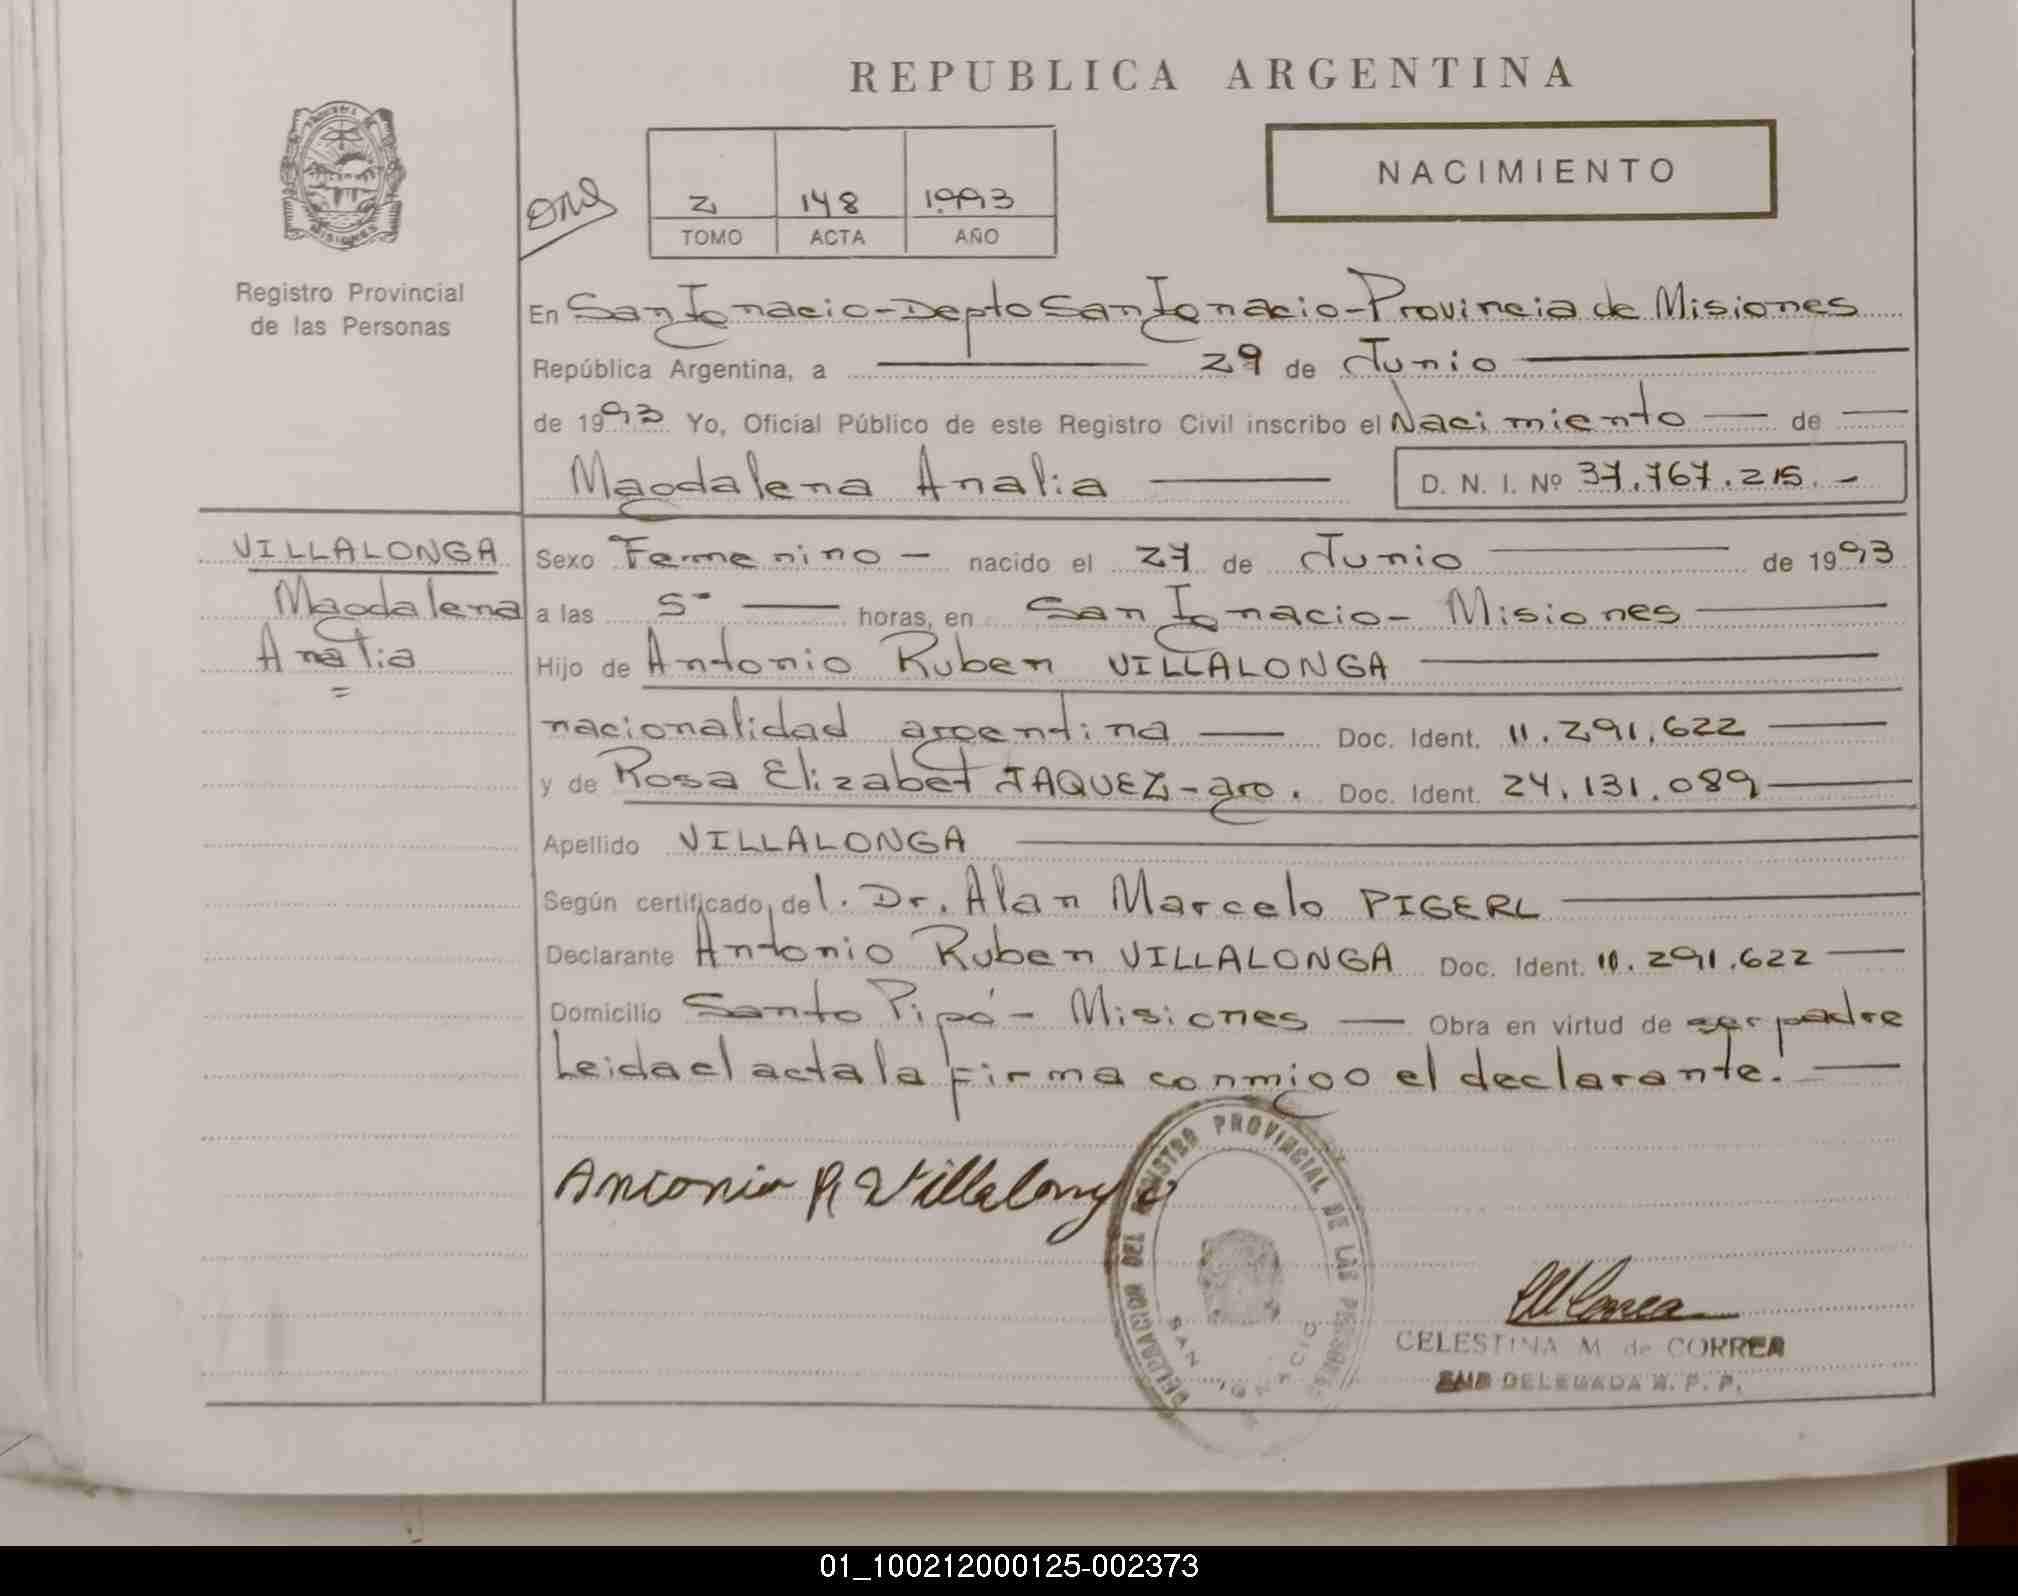 REPUBLICA ARGENTINA
NACIMIENTO
2 148 1993
TOMO ACTA AÑO
Registro Provincial
de las Personas
En San Ignacio - Depto San Ignacio - Provincia de Misiones
República Argentina, a 29 de Junio
de 1993 Yo, Oficial Público de este Registro Civil inscribo el Nacimiento de
Magdalena Analia D. N. I. Nº 37.767.215.-
VILLALONGA
Magdalena
Analia
Sexo Femenino - nacido el 27 de Junio de 1993
a las 5- horas, en San Ignacio - Misiones
Hijo de Antonio Ruben VILLALONGA
nacionalidad argentina Doc. Ident. 11.291.622
y de Rosa Elizabet JAQUEZ - arg. Doc. Ident. 24.131.089
Apellido VILLALONGA
Según certificado del. Dr. Alan Marcelo PIGERL
Declarante Antonio Ruben VILLALONGA Doc. Ident. 11.291.622
Domicilio Santo Pipó - Misiones Obra en virtud de ser padre
Leida el acta la firma conmigo el declarante.
Antonio R Villalonga
DELEGACION DEL REGISTRO PROVINCIAL DE LAS PERSONAS
SAN IGNACIO
CELESTINA M. de CORREA
SUB DELEGADA R. P. P.
01_100212000125-002373